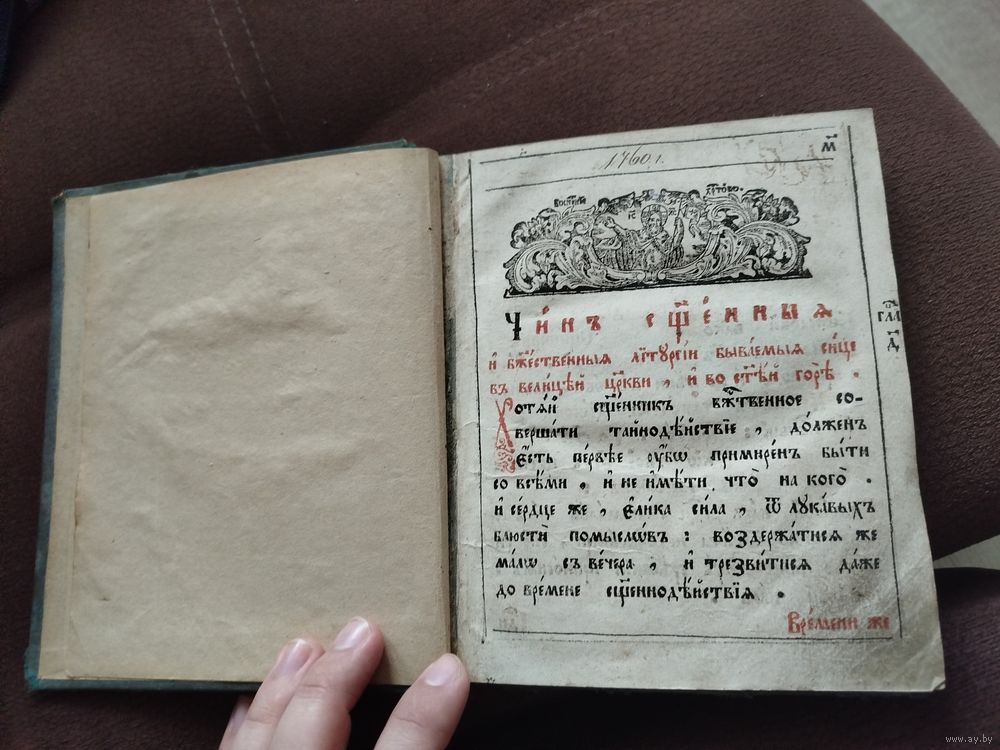 1760 г.
м҃
воскр҃сеніе
хр҃тово.
іс хс
Чи́нъ сщ҃е́нныѧ
гла
д҃
и҆ бж҃е́ственныѧ літꙋргі́и быва́емыѧ си́це
въ вели́цѣй цр҃кви , и҆ во ст҃ѣ́й горѣ̀ .
Хотѧ́й сщ҃е́нникъ бж҃тве́нное со-
верша́ти тайнодѣ́йствїе , до́лженъ
є҆́сть пе́рвѣе ᲂу҆́бѡ примире́нъ бы́ти
со всѣ́ми . и҆ не и҆мѣ́ти что̀ на кого̀ .
и҆ се́рдце же , є҆ли́ка си́ла , ѿ лꙋка́выхъ
блюстѝ по́мыслѡвъ : воздержа́тисѧ же
ма́лѡ съ ве́чера , и҆ трезви́тисѧ да́же
до вре́мене сщ҃еннодѣ́йствїѧ .
Вре́мени же
www.ay.by